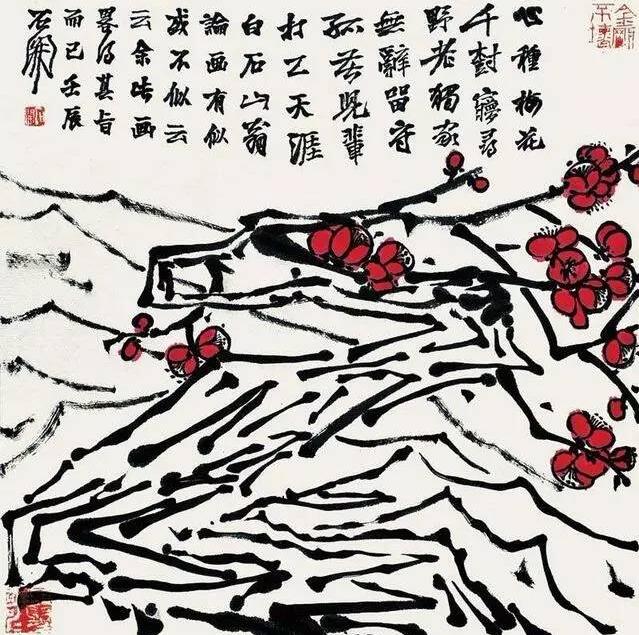 心種梅花
千樹寱尋
野老獨家
無辭留守
孤苦兒輩
打工天涯
白石山翁
論画有似
或不似云
云余此画
畧得其旨
而已壬辰
石開
金剛不壞